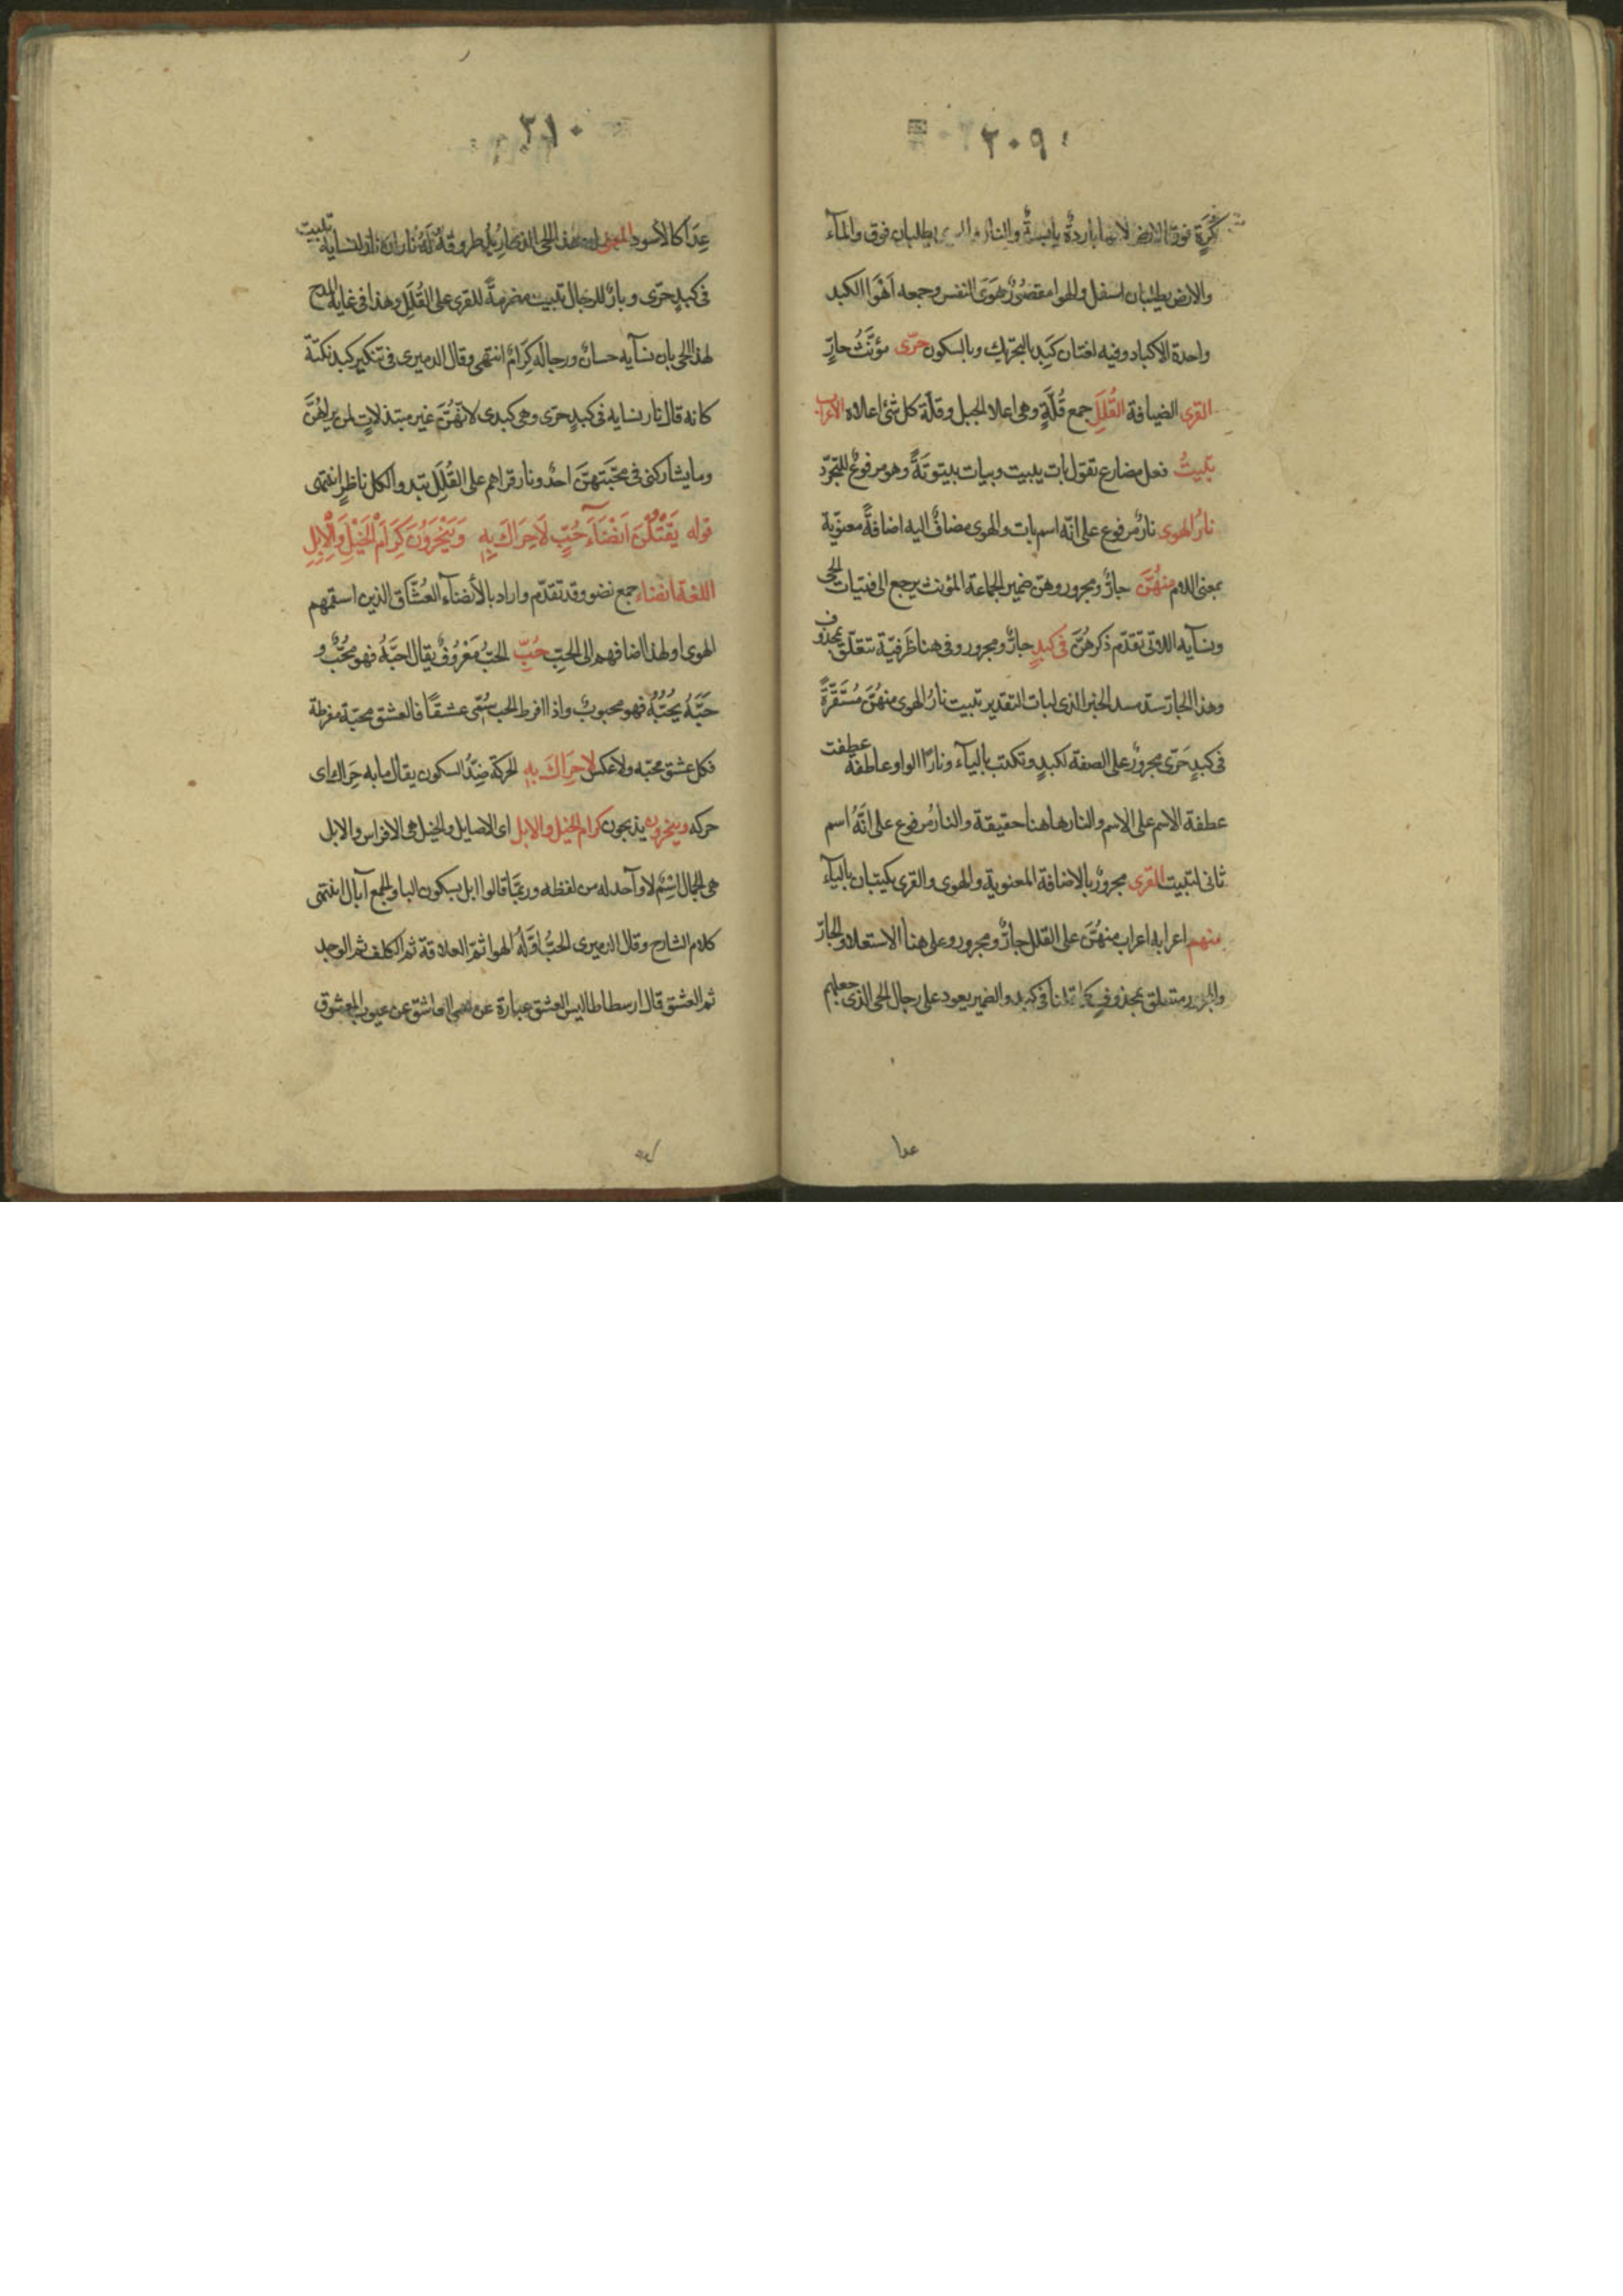 ٢٠٩
كُرَةٍ فوق الارض لانها باردةٌ يابسةٌ والنار يطلبان فوق والمآء
والارض يطلبان اسفل والهوا مقصُورٌ هَوَى النفس وجمعه اَهْوَا الكبد
واحدة الاكباد وفيه لغتان كَبِد بالتحريك وبالسكون حرّى مؤنَّثُ حارٍّ
القرى الضيافة القُلَلِ جمع قُلَّةٍ وهى اعلا الجبل وقلّة كل شئ اعلاه الاعراب
تبيتُ فعل مضارع تقول بات يبيت وبيات بيتوتَةً وهو مرفوعٌ للتجرّد
نارُ الهوى نارٌ مرفوع على انّه اسم بات والهوى مضافٌ اليه اضافةً معنويّة
بمعنى اللام منهُنَّ جارٌ ومجرور وهنّ ضمير الجماعة المؤنث يرجع الى فتيات الحى
ونسآيه اللاتى تقدّم ذكرهُنَّ فى كبدٍ جارٌ ومجرور وفى هنا ظَرفيّة تتعلّق بمحذوف
وهذا الجار سدّ مسد الخبر الذى لبات التقدير تبيت نارُ الهوى منهُنَّ مُسْتَقَرَّةً
فى كبدٍ حَرّى مجرورٌ على الصفة لكبدٍ وتكتب باليآء ونارًا الواو عاطفة عطفت
عطفة الاسم على الاسم والنار هاهنا حقيقة والنارُ مرفوع على انَّهُ اسم
ثانى لتبيت القرى مجرورٌ بالاضافة المعنوية والهوى والقرى يكتبان باليآء
منهم اعرابه اعراب منهُنَّ على القلل جارٌّ ومجرور وعلى هنا الاستعلاء والجارّ
والمجرور متعلق بمحذوفٍ كما قلنا فى كبد والضمير يعود على رجال الحى الذى جعلهم
عدا
٢١٠
عِدًا كالأسود المعنى ان هذا الحى الذى اُرِيدُ طروقَهُ لَهُ ناران نار لنسايه تبيت
فى كبدٍ حرّى ونارٌ للرجال تبيت مضرمةً للقرى على القُلَلِ وهذا فى غاية المدح
لهذا الحى بان نسآيه حسانٌ ورجاله كِرَامٌ انتهى وقال الدميرى فى تنكير كبد نكتة
كانه قال نار نسايه فى كبدٍ حرّى وهى كبدى لانّهُنَّ غير مبتذلاتٍ لمن يراهُنَّ
وما يشاركنى فى محَبّتهنَّ احدٌ ونار قراهم على القُلَلِ تبدو الكل ناظرٍ انتهى
قوله يَقْتُلْنَ اَنْضَآءَ حُبٍّ لَاحِرَاكَ بِهِ وَيَنْحَرُونَ كِرَامَ الْخَيْلِ وَالْاِبِلِ
اللغة انضاء جمع نضو وقد تقدّم واراد بالأنضآء العُشَّاق الذين اسقمهم
الهوى او لهذا اضافهم الى الحبّ حُبِّ الحبُّ مَعْرُوفٌ يقال احبَّهُ فهو محُبٌّ و
حَبَّهُ يُحِبُّهُ فهو محبوبٌ واذا افرط الحب سُمِّى عشقًا فالعشق محبّة مفرطة
فكل عشق محبّه ولا عكس لاحِرَاكَ بِهِ الحركة ضِدُّ السكون يقال ما به حِرَاك اى
حركه وينحرون يذبحون كرام الخيل والابل اى الاصايل والخيل هى الافراس والابل
هى الجمال اسْمٌ لا وآحد له من لفظه وربمَّا قالوا ابل بسكون البا والجمع آبال انتهى
كلام الشارح وقال الدميرى الحبُّ اوّلُهُ الهوا ثمّ العلاقة ثم الكلف ثم الوجد
ثم العشق قال ارسطاطاليس العشق عبارة عن عمى العاشق عن عيوب المعشوق